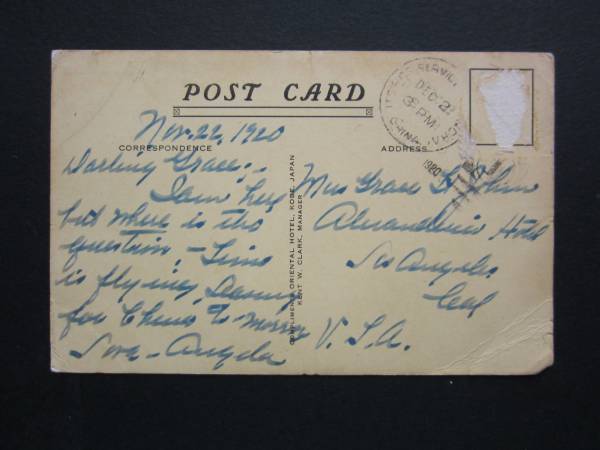 POST CARD
CORRESPONDENCE
ADDRESS
Nov. 22, 1920
Darling Grace; -
I am here
but where is the
question, - Time
is flying, Leaving
for China to-morrow
Love - Angela
COMPLIMENTS ORIENTAL HOTEL, KOBE, JAPAN
KENT W. CLARK, MANAGER
DEC 22
3 PM
1920
Miss Grace
Alexandria Hotel
Los Angeles
Cal
U.S.A.